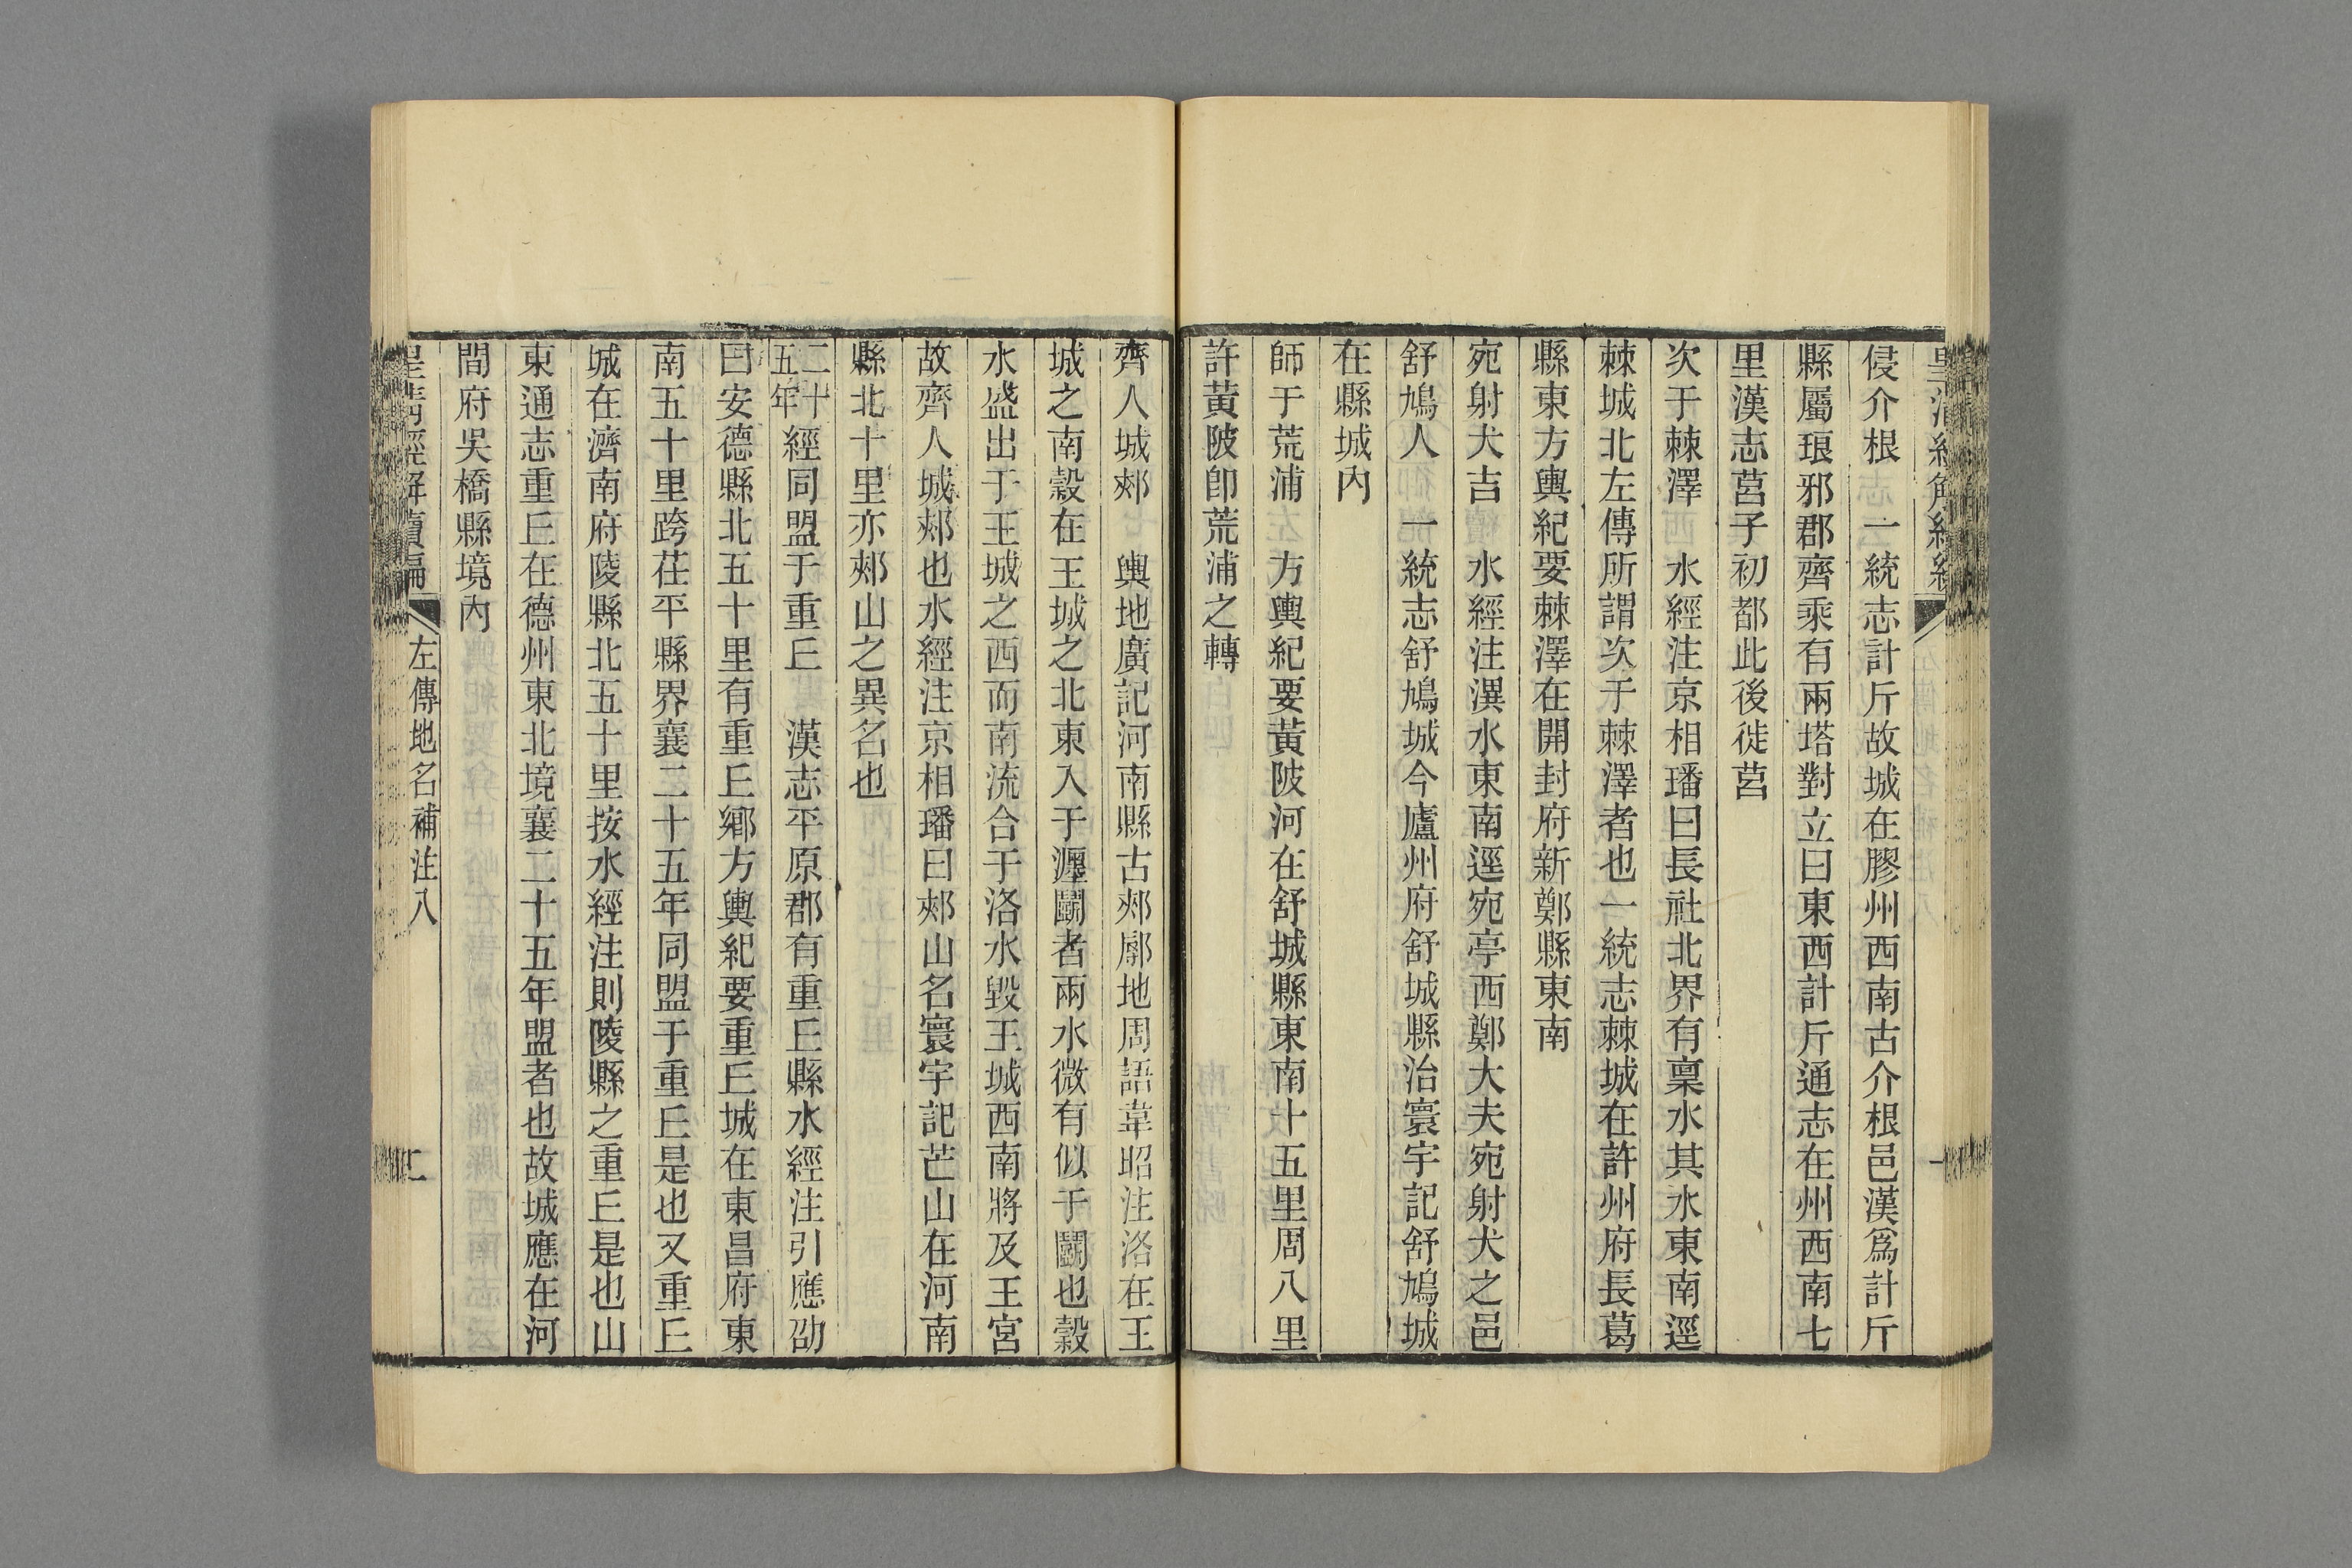 侵介根　一統志計斤故城在膠州西南古介根邑漢爲計斤
縣屬琅邪郡齊乘有兩塔對立曰東西計斤通志在州西南七
里漢志莒子初都此後徙莒
次于棘澤　水經注京相璠曰長社北界有稟水其水東南逕
棘城北左傳所謂次于棘澤者也一統志棘城在許州府長葛
縣東方輿紀要棘澤在開封府新鄭縣東南
宛射犬吉　水經注潩水東南逕宛亭西鄭大夫宛射犬之邑
舒鳩人　一統志舒鳩城今廬州府舒城縣治寰宇記舒鳩城
在縣城內
師于荒浦　方輿紀要黃陂河在舒城縣東南十五里周八里
許黃陂卽荒浦之轉
齊人城郟　輿地廣記河南縣古郟廓地周語韋昭注洛在王
城之南穀在王城之北東入于瀍鬭者兩水微有似于鬭也穀
水盛出于王城之西而南流合于洛水毀王城西南將及王宮
故齊人城郟也水經注京相璠曰郟山名寰宇記芒山在河南
縣北十里亦郟山之異名也
二十五年經同盟于重丘　漢志平原郡有重丘縣水經注引應劭
曰安德縣北五十里有重丘鄉方輿紀要重丘城在東昌府東
南五十里跨茌平縣界襄二十五年同盟于重丘是也又重丘
城在濟南府陵縣北五十里按水經注則陵縣之重丘是也山
東通志重丘在德州東北境襄二十五年盟者也故城應在河
間府吳橋縣境內
皇清經解續編　左傳地名補注八